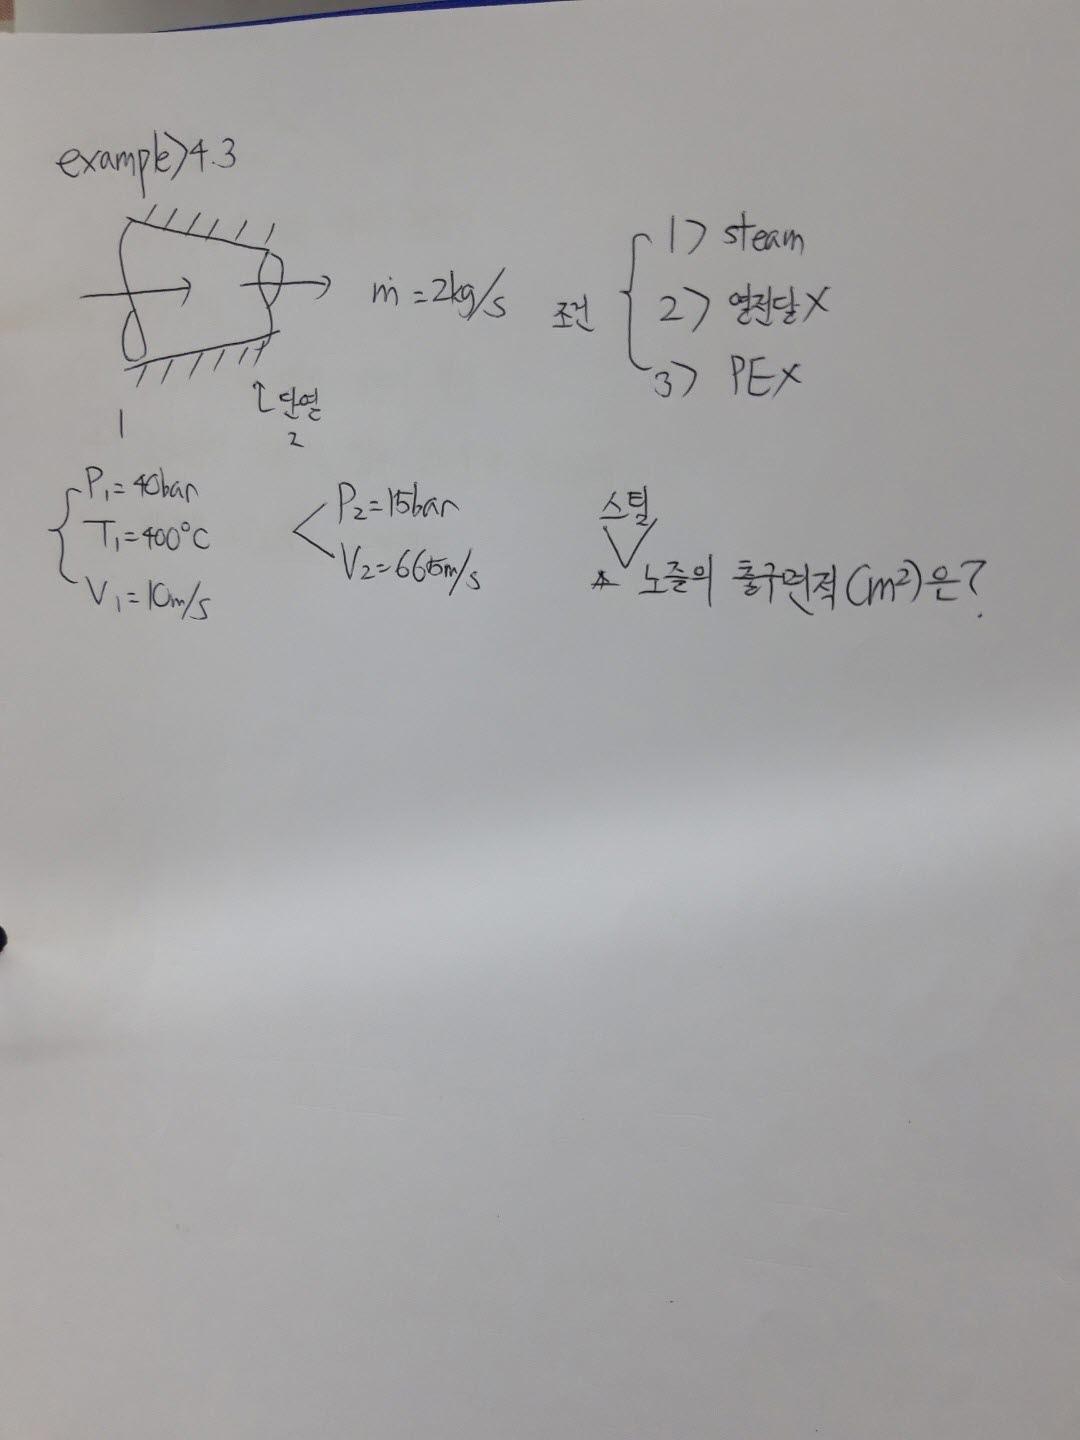 example>4.3
ṁ = 2kg/s
조건
1> steam
2> 열전달X
3> PEX
↑단열
1
2
P₁=40bar
T₁=400°C
V₁=10m/s
P₂=15bar
V₂=665m/s
스팀
* 노즐의 출구면적(m²)은?